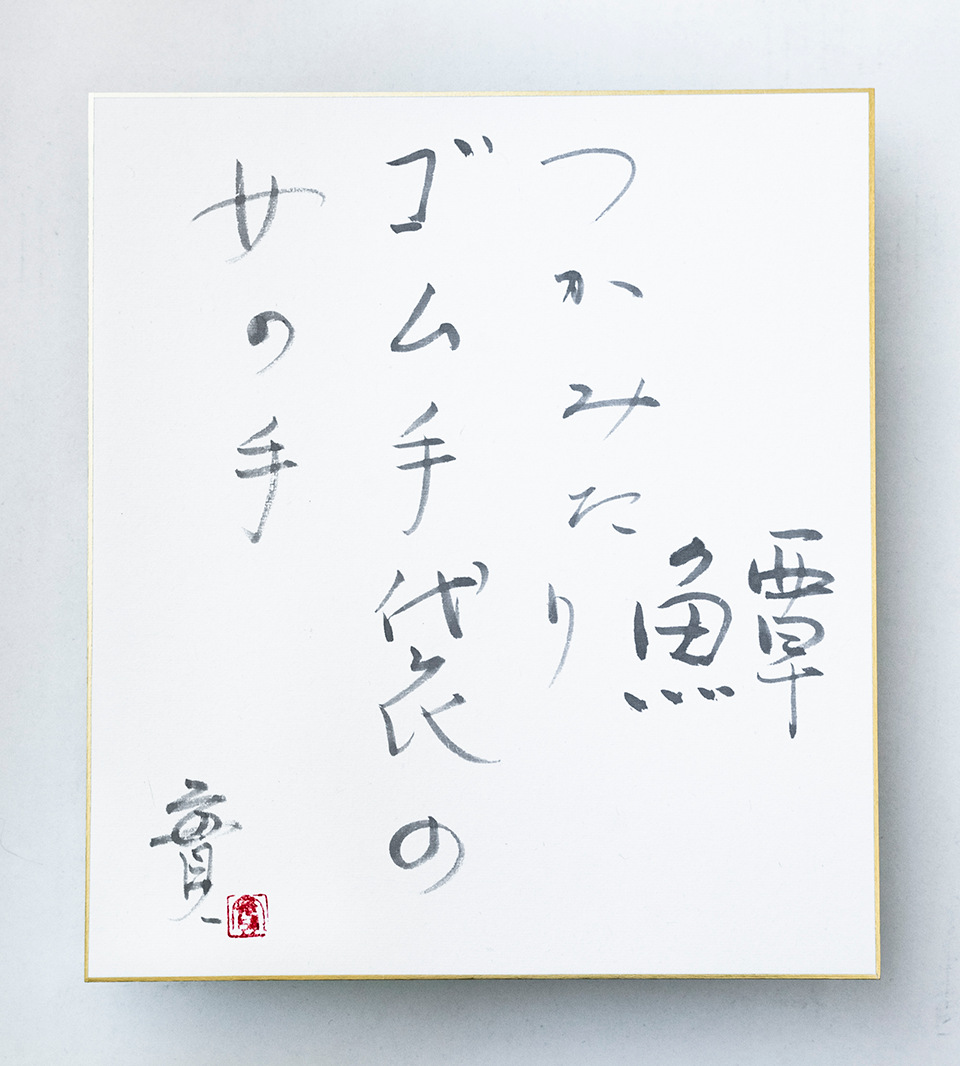 鱏
つかみたり
ゴム手袋の
女の手